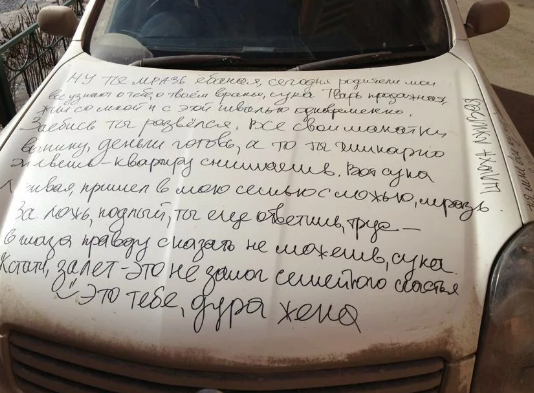 Ну ты мразь ебаная, сегодня родители мои
все узнают о тебе, о твоём вранье, сука Тварь продажная
жил со мной и с этой швалью одновременно.
Заебись ты развёлся. Все свои манатки
верну, деньги готовь, а то ты шикарно
живешь - квартиру снимаешь. Вот сука
лживая, пришел в мою семью с ложью, мразь.
За ложь, подлый, ты еще ответишь, трус -
в глаза правду сказать не можешь, сука.
Кстати, залет - это не залог семейного счастья
Это тебе, дура жена